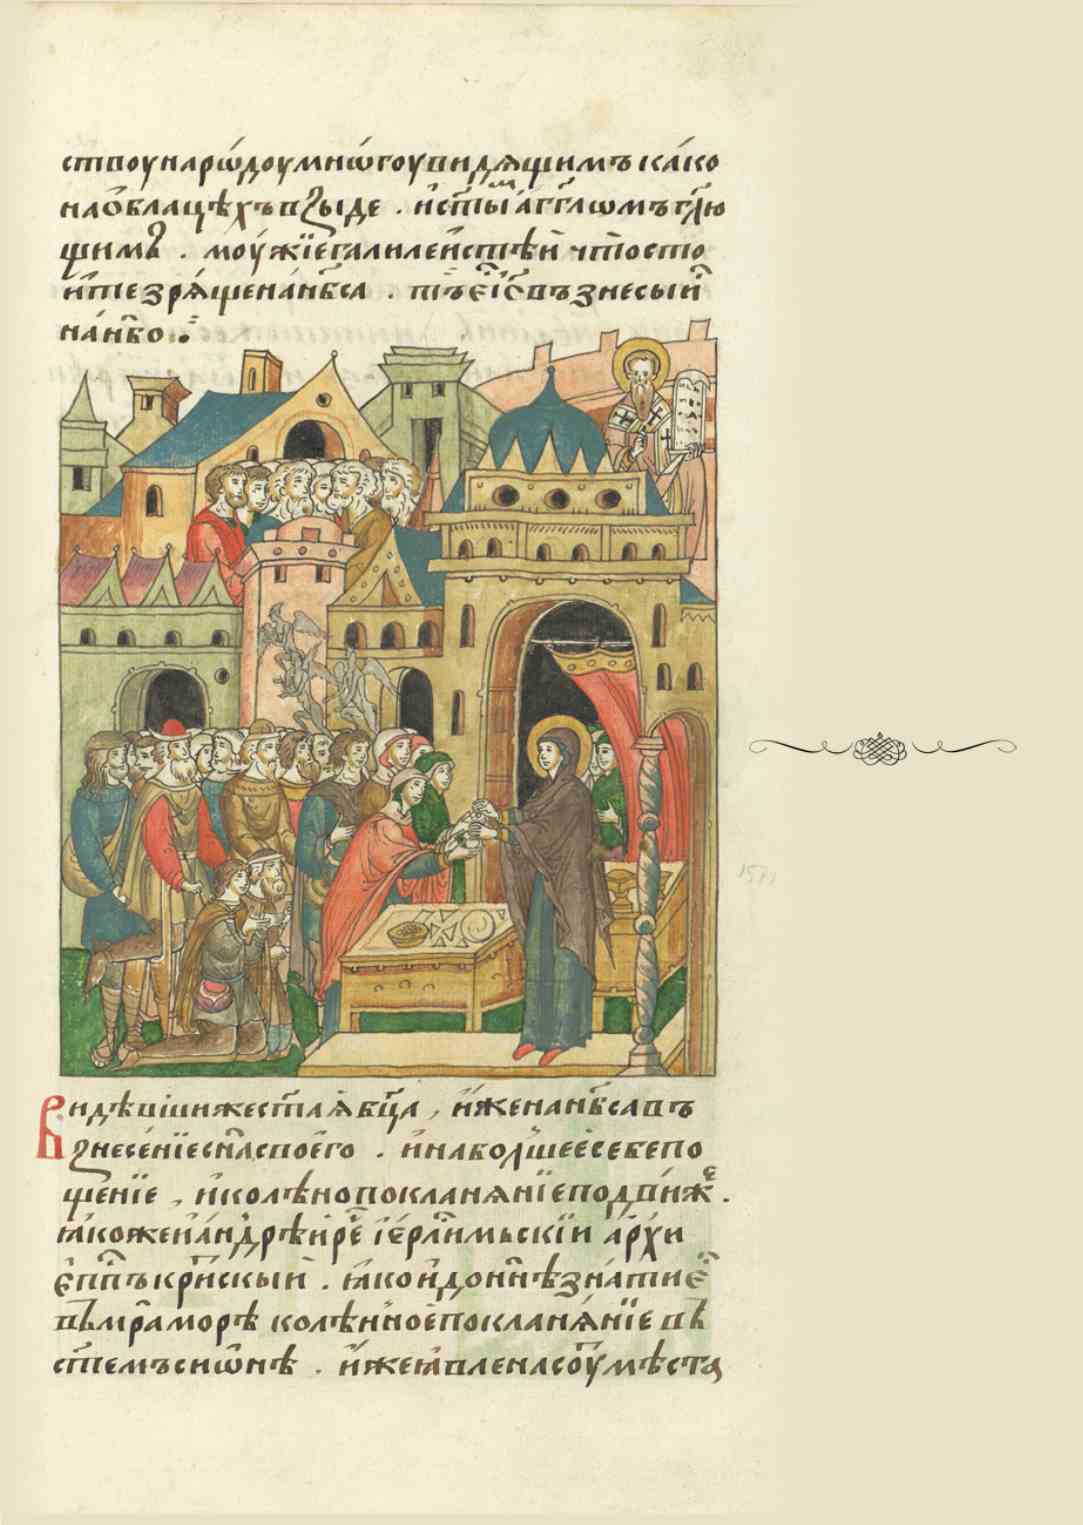 ствоу нарѡдоу мнѡгоу видѧщимъ како
на ѻблацѣхъ взыде . и ст҃ымъ агг҃лѡмъ гл҃ю
щимъ . моужїе галилеистѣи что сто
ите зрѧще на нб҃са . тъ є҆ і҃с възнесыи
на нб҃о :
Видѣвши же ст҃аꙗ бц҃а , иже на нб҃са въ
знесенїе сн҃а своего . и на болшее себе по
щенїе , и колѣнопоклонѧнїе подвиже .
ꙗкоже и андрѣи ре҃ іер҃лимьскїи архи
єп҃пъ критскыи . ꙗко и донн҃ѣ знати є҆
въ мраморѣ колѣнное поклонѧнїе въ
ст҃емъ сиѡнѣ . иже ꙗвленасоу мѣста